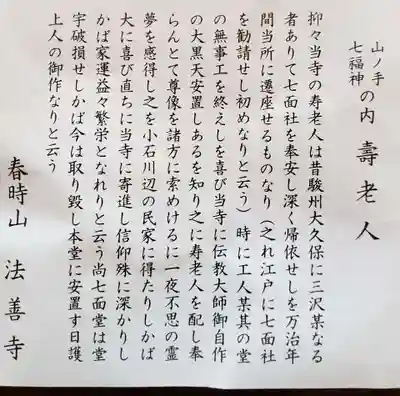 山ノ手
七福神
の内 壽老人
抑々当寺の寿老人は昔駿州大久保に三沢某なる
者ありて七面社を奉安し深く帰依せしを万治年
間当所に遷座せるものなり(之れ江戸に七面社
を勧請せし初めなりと云う)時に工人某其の堂
の無事工を終えしを喜び当寺に伝教大師御自作
の大黒天安置しあるを知り之に寿老人を配し奉
らんとて尊像を諸方に索めけるに一夜不思の霊
夢を感得し之を小石川辺の民家に得たりしかば
大に喜び直ちに当寺に寄進し信仰殊に深かりし
かば家運益々繁栄となれりと云う尚七面堂は堂
宇破損せしかば今は取り毀し本堂に安置す日護
上人の御作なりと云う
春時山 法善寺